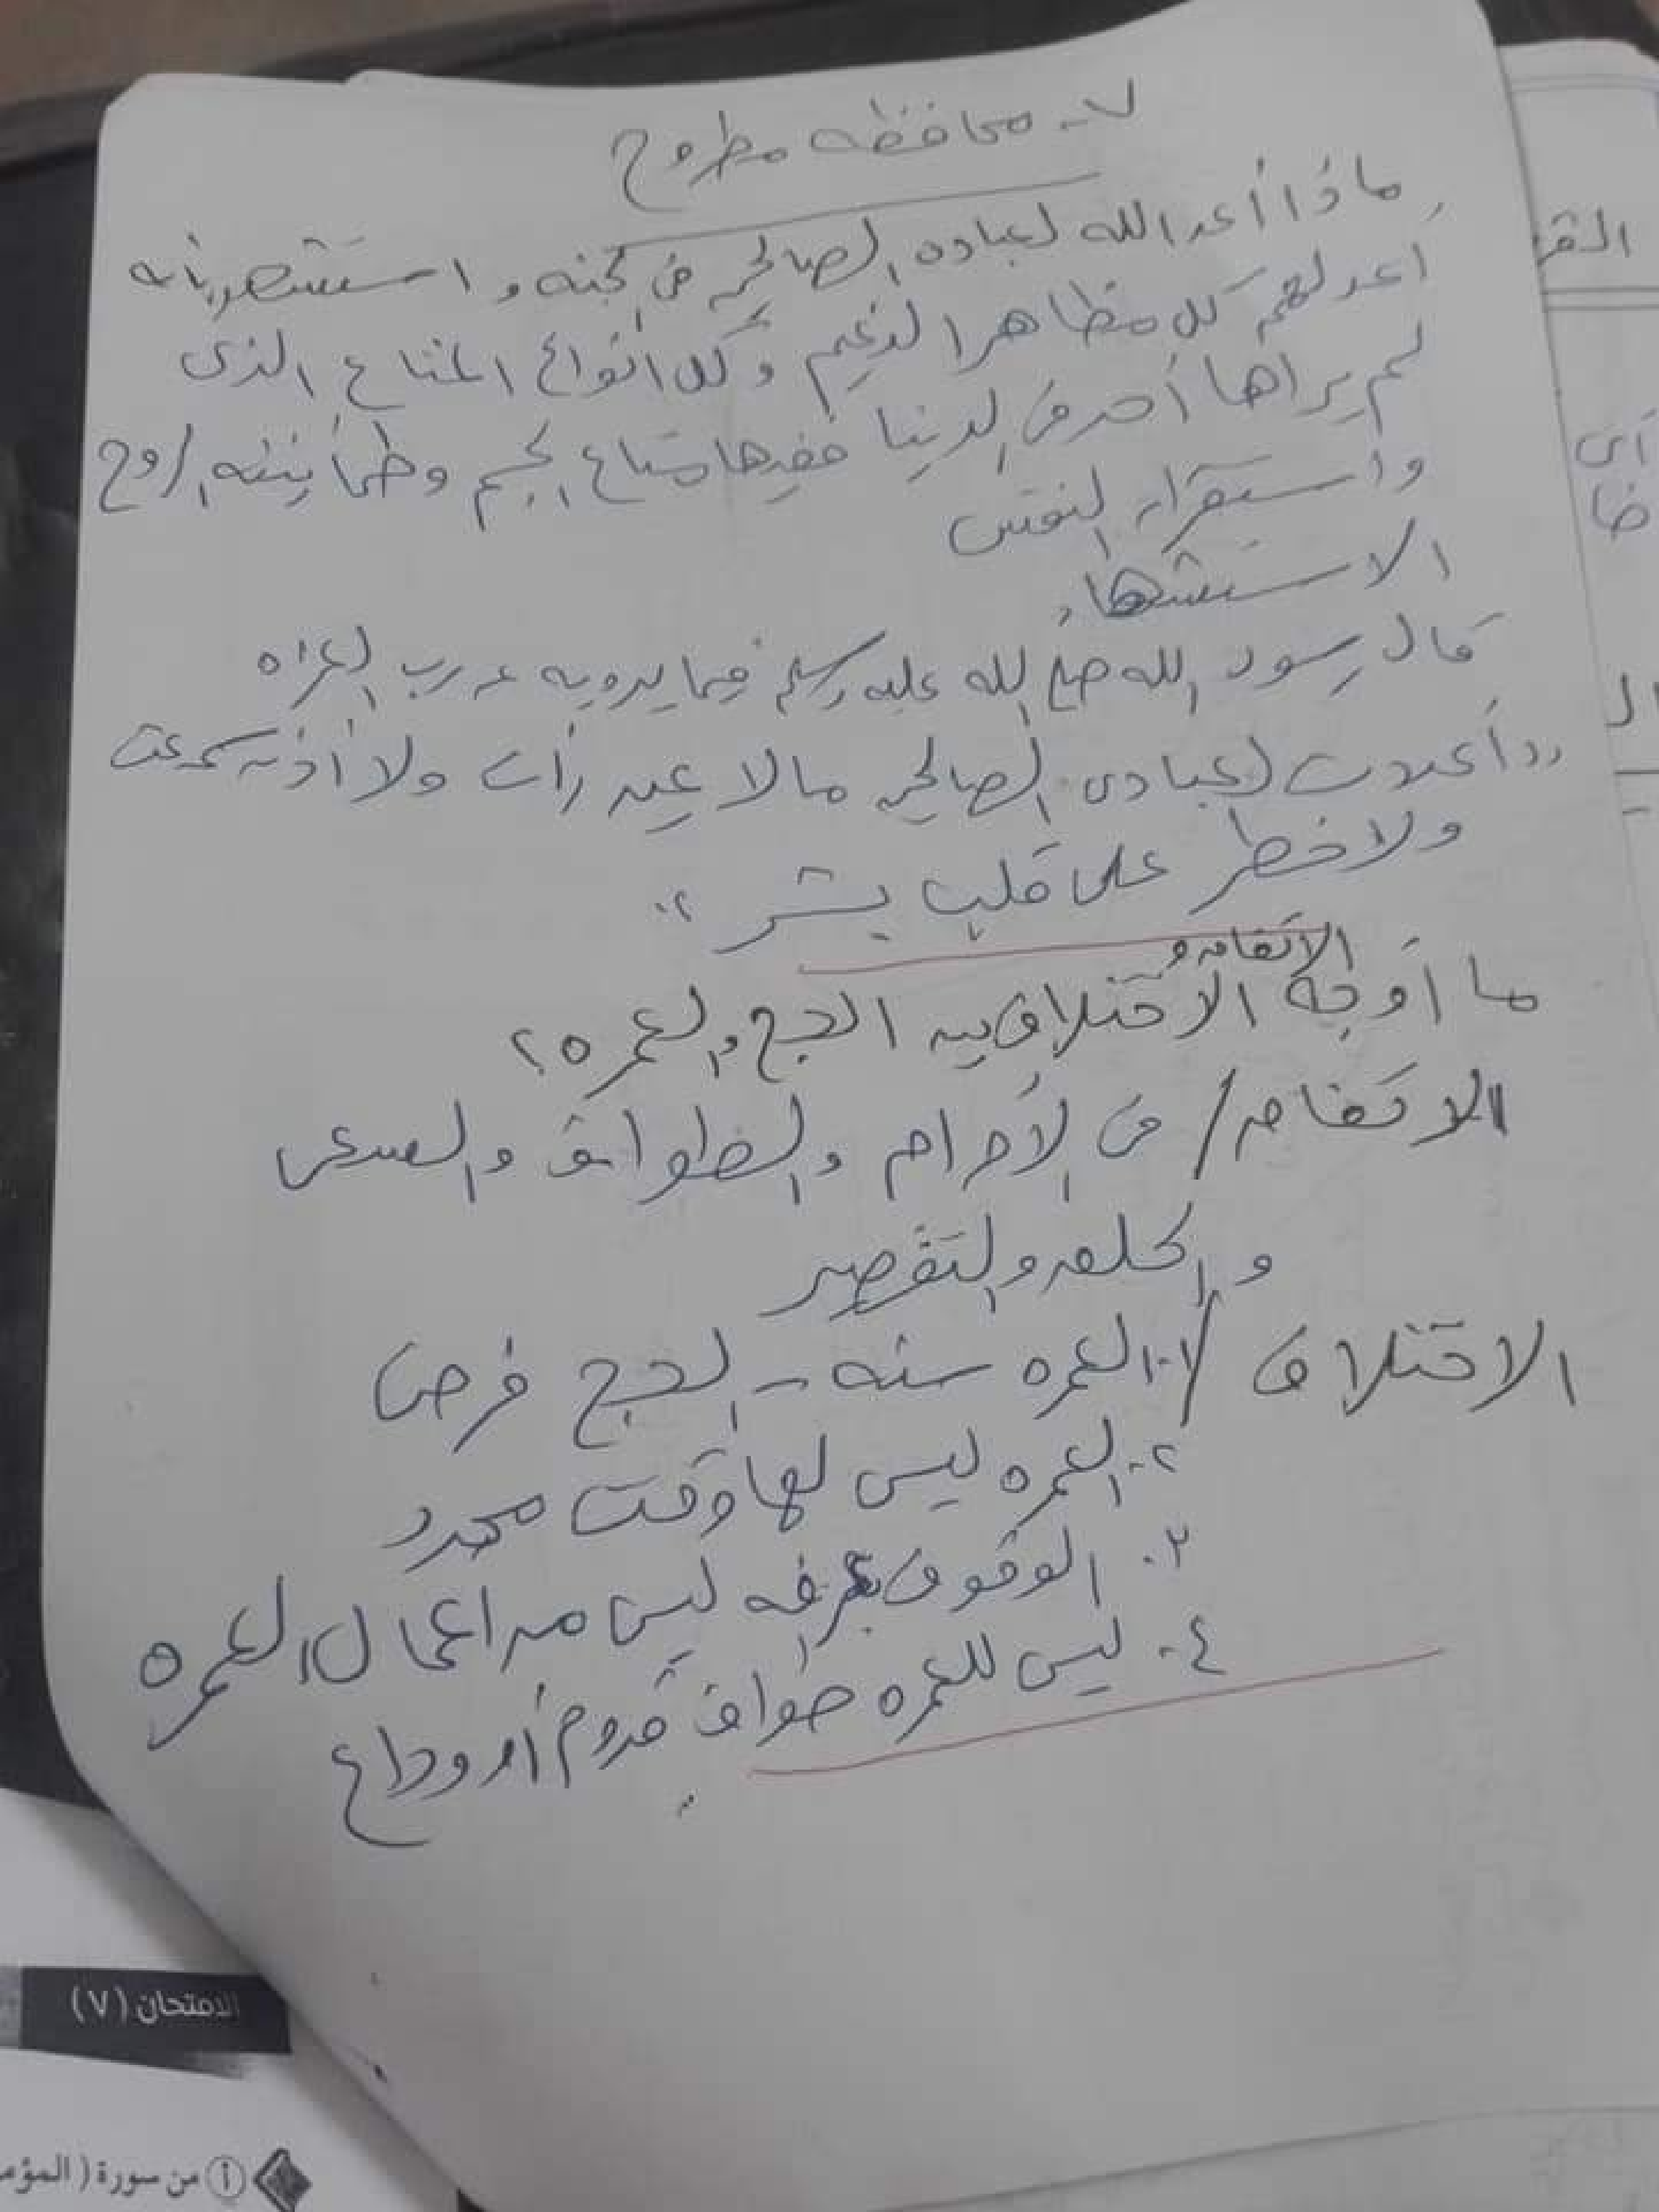 ٧- محافظه مطروح
ماذا أعد الله لعباده الصالحين فى الجنه واستشهد بأنه
أعد لهم كل مظاهر النعيم وكل أنواع المتاع الذى
لم يراها أحد فى الدنيا ففيها متاع الجسم وطمأنينه الروح
واستقرار النفس
الاستشهاد
قال رسول الله صلى الله عليه وسلم فيما يرويه عن رب العزه
"أعددت لعبادى الصالحين مالا عين رأت ولا أذن سمعت
ولا خطر على قلب بشر"
الاتفاق و
ما أوجه الاختلاف بين الحج والعمره؟
الاتفاق / فى الأحرام والطواف والسعى
والحلق والتقصير
الاختلاف / ١- العمره سنه - الحج فرض
٢- العمره ليس لها وقت محدد
٣- الوقوف بعرفه ليس من اعمال العمره
٤- ليس للعمره طواف قدوم أو وداع
القر
أى
ضا
ال
الامتحان (٧)
أ من سورة ( المؤم